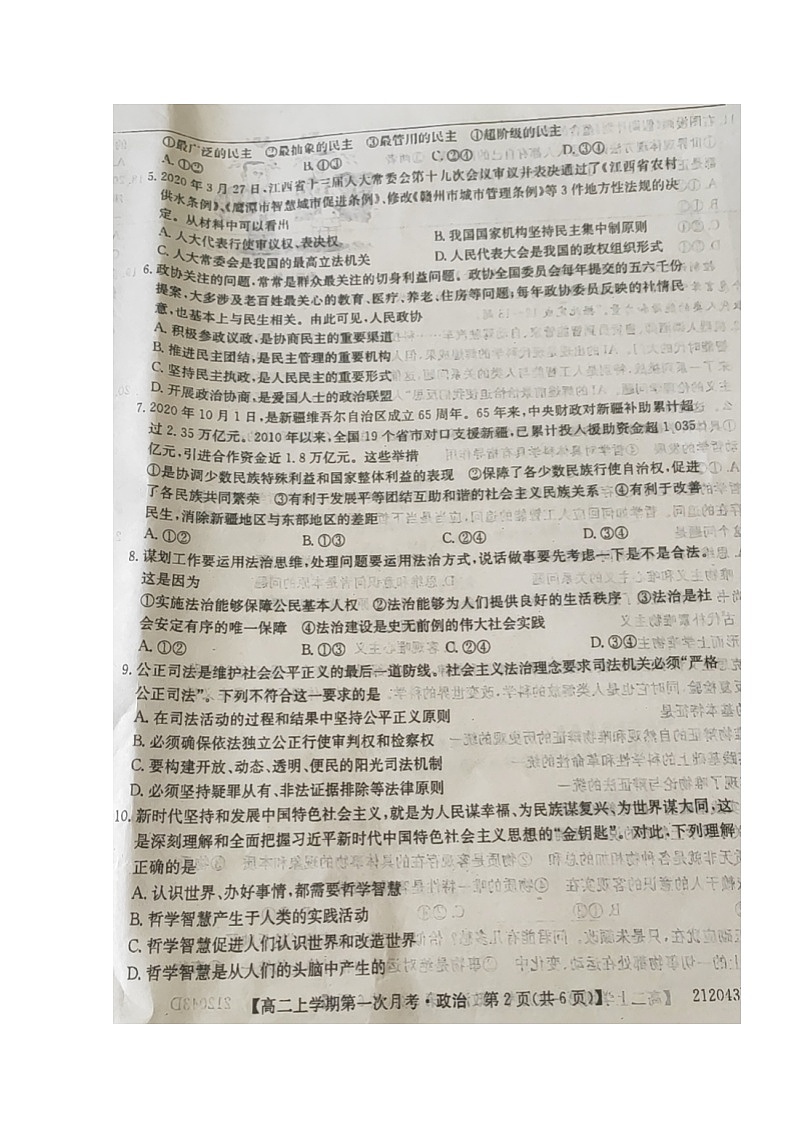 ①最广泛的民主 ②最抽象的民主 ③最管用的民主 ④超阶级的民主
A. ①② B. ①③ C. ②④ D. ③④
5. 2020 年 3 月 27 日,江西省十三届人大常委会第十九次会议审议并表决通过了《江西省农村
供水条例》、《鹰潭市智慧城市促进条例》、修改《赣州市城市管理条例》等 3 件地方性法规的决
定。从材料中可以看出
A. 人大代表行使审议权、表决权 B. 我国国家机构坚持民主集中制原则
C. 人大常委会是我国的最高立法机关 D. 人民代表大会是我国的政权组织形式
6. 政协关注的问题,常常是群众最关注的切身利益问题。政协全国委员会每年提交的五六千份
提案,大多涉及老百姓最关心的教育、医疗、养老、住房等问题;每年政协委员反映的社情民
意,也基本上与民生相关。由此可见,人民政协
A. 积极参政议政,是协商民主的重要渠道
B. 推进民主团结,是民主管理的重要机构
C. 坚持民主执政,是人民民主的重要形式
D. 开展政治协商,是爱国人士的政治联盟
7. 2020 年 10 月 1 日,是新疆维吾尔自治区成立 65 周年。65 年来,中央财政对新疆补助累计超
过 2.35 万亿元。2010 年以来,全国 19 个省市对口支援新疆,已累计投入援助资金超 1 035
亿元,引进合作资金近 1.8 万亿元。这些举措
①是协调少数民族特殊利益和国家整体利益的表现 ②保障了各少数民族行使自治权,促进
了各民族共同繁荣 ③有利于发展平等团结互助和谐的社会主义民族关系 ④有利于改善
民生,消除新疆地区与东部地区的差距
A. ①② B. ①③ C. ②④ D. ③④
8. 谋划工作要运用法治思维,处理问题要运用法治方式,说话做事要先考虑一下是不是合法。
这是因为
①实施法治能够保障公民基本人权 ②法治能够为人们提供良好的生活秩序 ③法治是社
会安定有序的唯一保障 ④法治建设是史无前例的伟大社会实践
A. ①② B. ①③ C. ②④ D. ③④
9. 公正司法是维护社会公平正义的最后一道防线。社会主义法治理念要求司法机关必须“严格
公正司法”。下列不符合这一要求的是
A. 在司法活动的过程和结果中坚持公平正义原则
B. 必须确保依法独立公正行使审判权和检察权
C. 要构建开放、动态、透明、便民的阳光司法机制
D. 必须坚持疑罪从有、非法证据排除等法律原则
10. 新时代坚持和发展中国特色社会主义,就是为人民谋幸福、为民族谋复兴、为世界谋大同,这
是深刻理解和全面把握习近平新时代中国特色社会主义思想的“金钥匙”。对此,下列理解
正确的是
A. 认识世界、办好事情,都需要哲学智慧
B. 哲学智慧产生于人类的实践活动
C. 哲学智慧促进人们认识世界和改造世界
D. 哲学智慧是从人们的头脑中产生的
【高二上学期第一次月考·政治 第 2 页(共 6 页)】 212043